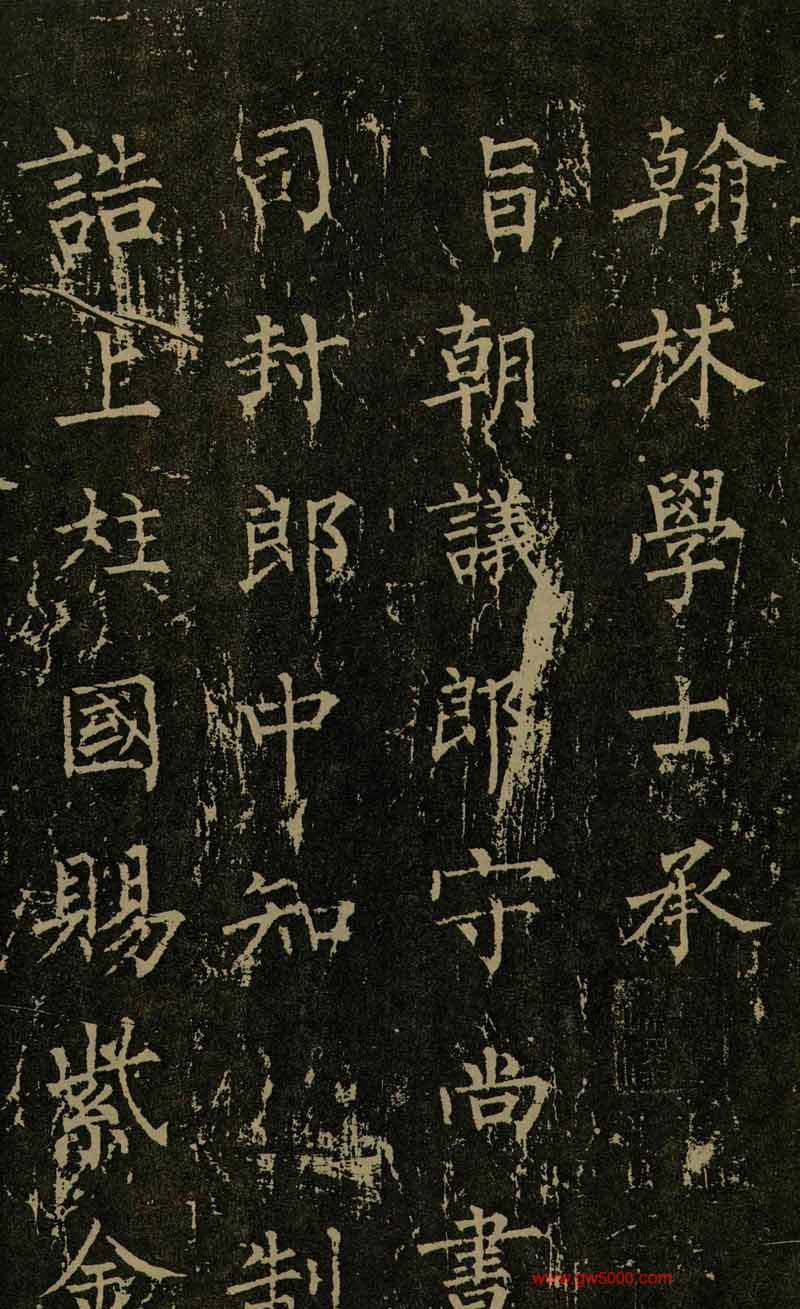 翰林學士承
旨朝議郎守尚書
司封郎中知制
誥上柱國賜紫金
www.gw5000.com